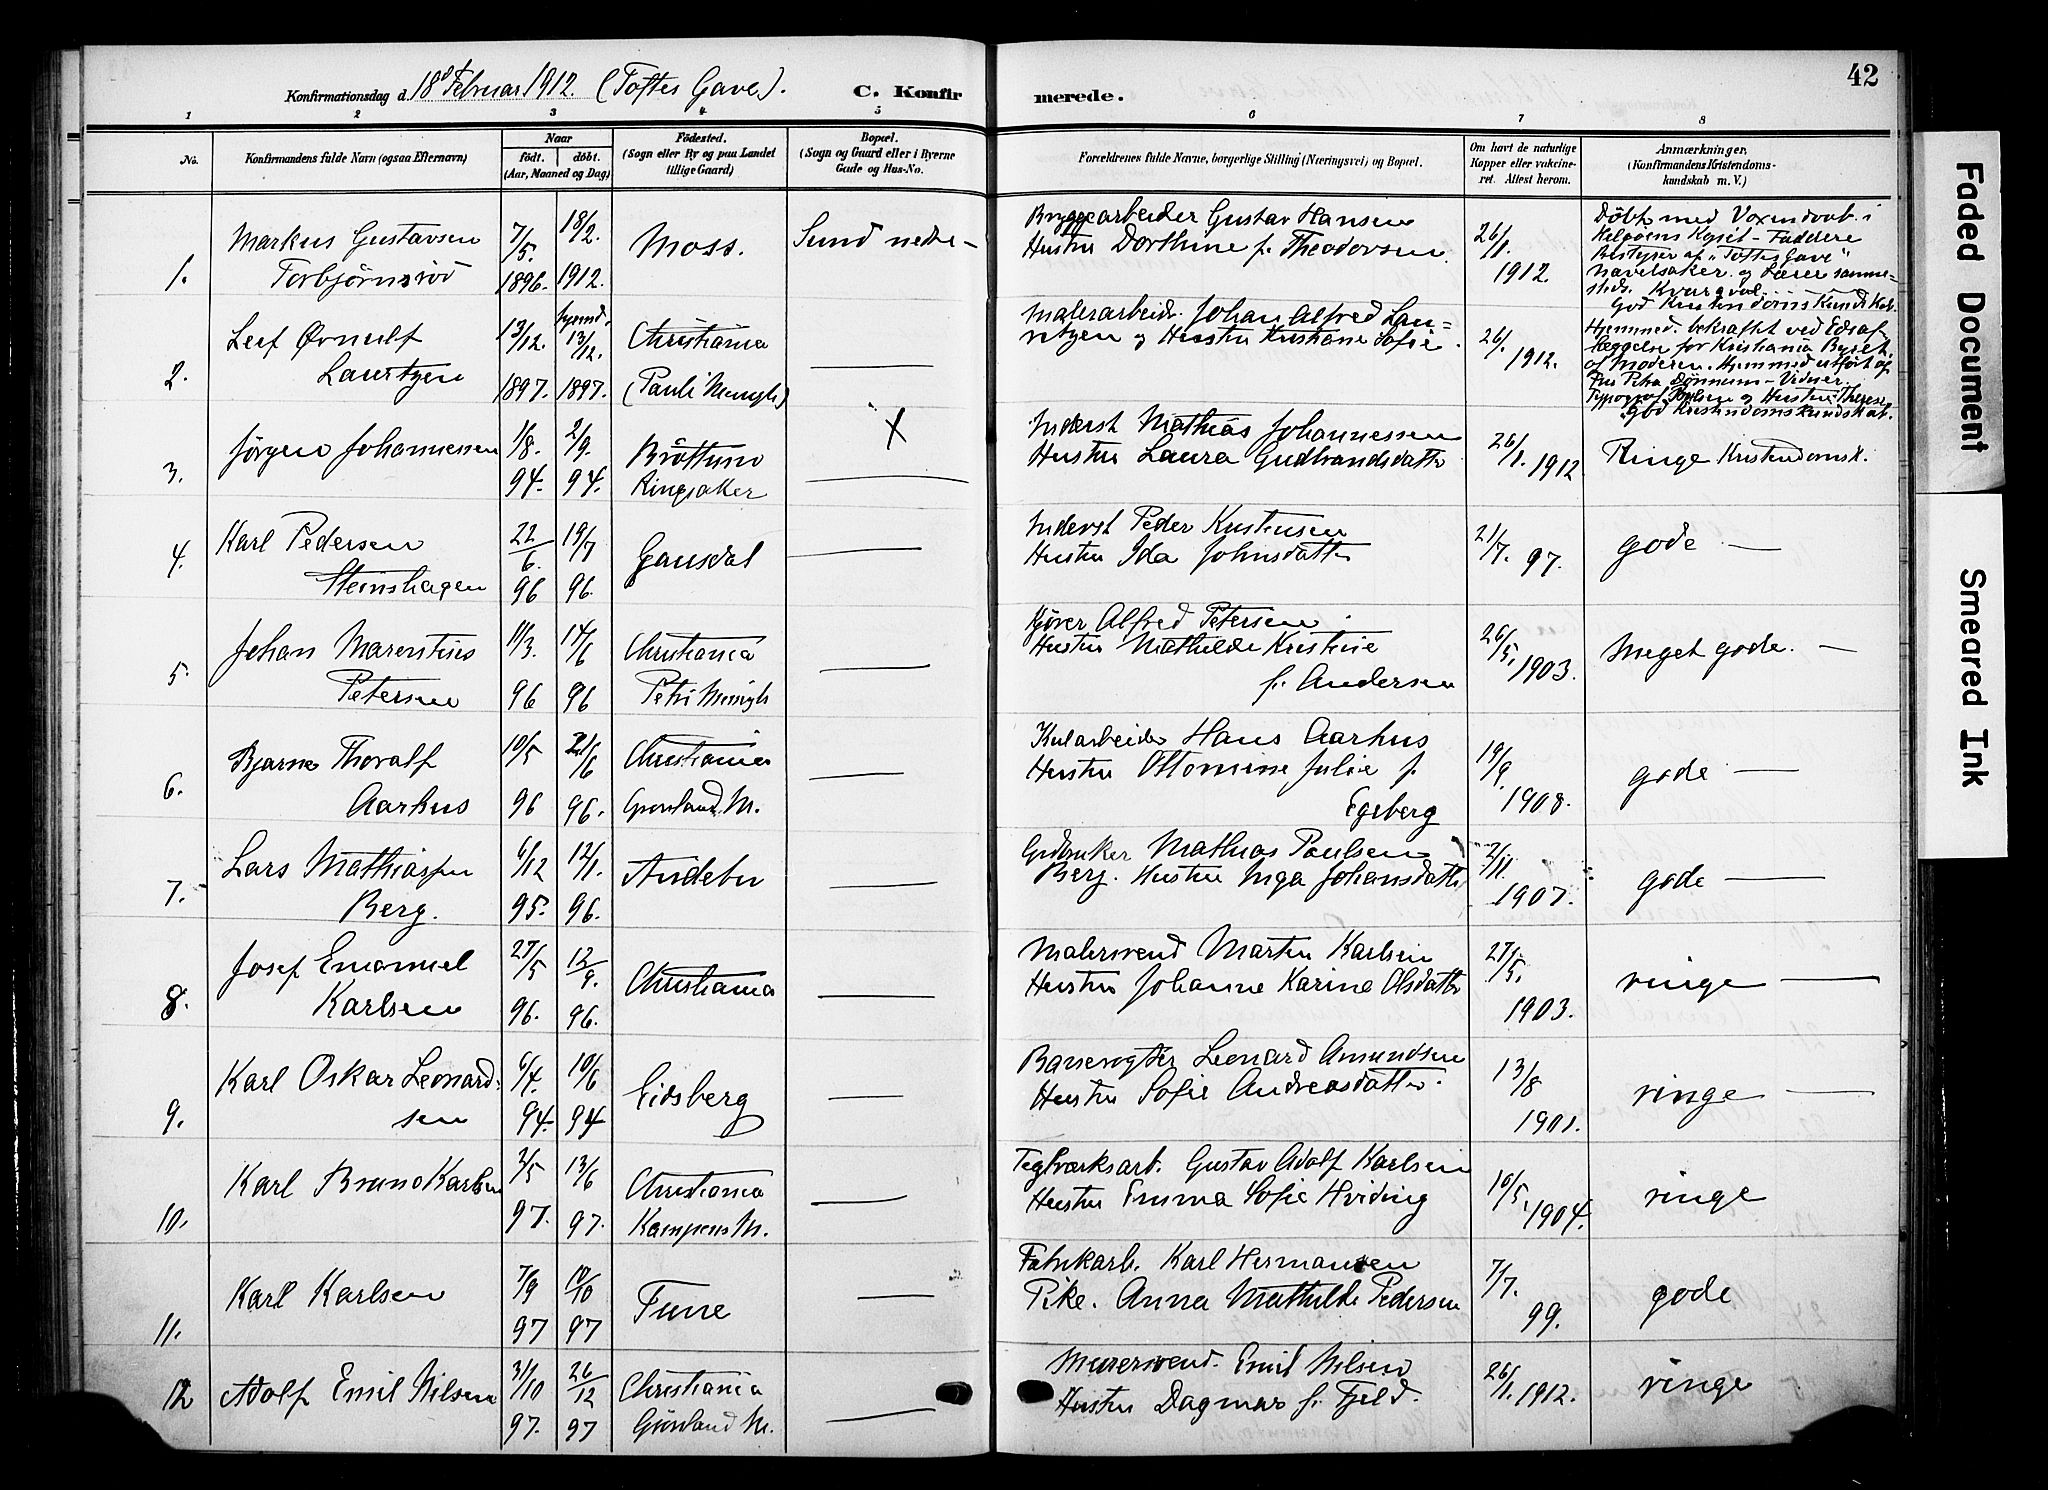 42
Konfirmationsdag d. 18de Februar 1912. (Toftes Gave).
C. Konfirmerede.
1 2 3 4 5 6 7 8
No.
Konfirmandens fulde Navn (ogsaa Efternavn)
Naar
født. døbt.
(Aar, Maaned og Dag)
Fødested.
(Sogn eller By og paa Landet
tillige Gaard)
Bopæl.
(Sogn og Gaard eller i Byerne
Gade og Hus-No.
Forældrenes fulde Navne, borgerlige Stilling (Næringsvei) og Bopæl.
Om havt de naturlige
Kopper eller vakcine-
ret. Attest herom.
Anmærkninger,
(Konfirmandens Kristendoms-
kundskab m. V.)
1.
Markus Gustavsen
Torbjørnsrød
7/5. 1896.
18/2. 1912.
Moss.
Sund nedre
Bryggearbeider Gustav Hansen
Hustru Dorthine f. Theodorsen.
26/1. 1912.
Døbt med
Faddere
Bestyrer af "Toftes Gave"
og Lærer samme-
steds.
God Kristendoms Kundskab.
2.
Leif Ørnulf
Lauritzen
13/12. 1897.
hjemd. 13/12. 1897.
Christiania
(Pauli Menigh)
Malerarbeider Johan Alfred Lau=
ritzen og Hustru Kristiane Sofie.
26/1. 1912.
Hjemmed. bekræftet ved Edsaf
læggelse for Kristiania Byret
af Moderen. Hjemmed. utført af
Fru Petra Dønnum - Vidner.
Typograf og Hustru Therese
God Kristendomskundskab.
3.
Jørgen Johannessen
1/8. 94.
2/9. 94.
Brøttum
Ringsaker
X
Inderst Mathias Johannessen
Hustru Laura Gudbrandsdatter
26/1. 1912
Ringe Kristendomsk.
4.
Karl Pedersen
Steinshagen
22/6. 96
19/7 96.
Gausdal
Inderst Peder Kristensen
Hustru Ida Johnsdatter
21/7. 97.
gode —
5.
Johan Marentius
Petersen
11/3. 96
14/6 96
Christiania
Petri Menigh
Kjører Alfred Petersen
Hustru Mathilde Kristine
f. Andersen
26/5. 1903.
Meget gode. —
6.
Bjarne Thoralf
Aarhus
10/5 96
21/6 96.
Christiania
Grønland M.
Kularbeider Hans Aarhus
Hustru Ottomine Julie f.
Egeberg
19/9. 1908.
gode —
7.
Lars Mathiassen
Berg.
6/12 95.
12/1. 96.
Andebu
Grdbruker Mathias Paulsen
Berg. Hustru Inga Johansdatter
2/11. 1907.
gode —
8.
Josef Emanuel
Karlsen
27/5 96.
12/9. 96.
Christiania
Malersvend Martin Karlsen
Hustru Johanne Karine Olsdatter
27/5. 1903.
ringe —
9.
Karl Oskar Leonard-
sen
6/4. 94.
10/6 94
Eidsberg
Banevogter Leonard Amundsen
Hustru Sofie Andreasdatter.
13/8 1901.
ringe —
10.
Karl Bruno Karlsen
2/5 97.
13/6 97.
Christiania
Kampens M.
Teglværksarb. Gustav Adolf Karlsen
Hustru Emma Sofie Hviding
10/5. 1904.
ringe
11.
Karl Karlsen
7/9 97
10/10 97
Tune
Fabrikarb. Karl Hermansen
Pike. Anna Mathilde Pedersen
7/7. 99.
gode
12
Adolf Emil Nilsen
31/10 97.
26/12 97
Christiania
Grønland M.
Murersvend. Emil Nilsen
Hustru Dagmar f. Fjeld.
26/1. 1912.
ringe
Faded Document
Smeared Ink